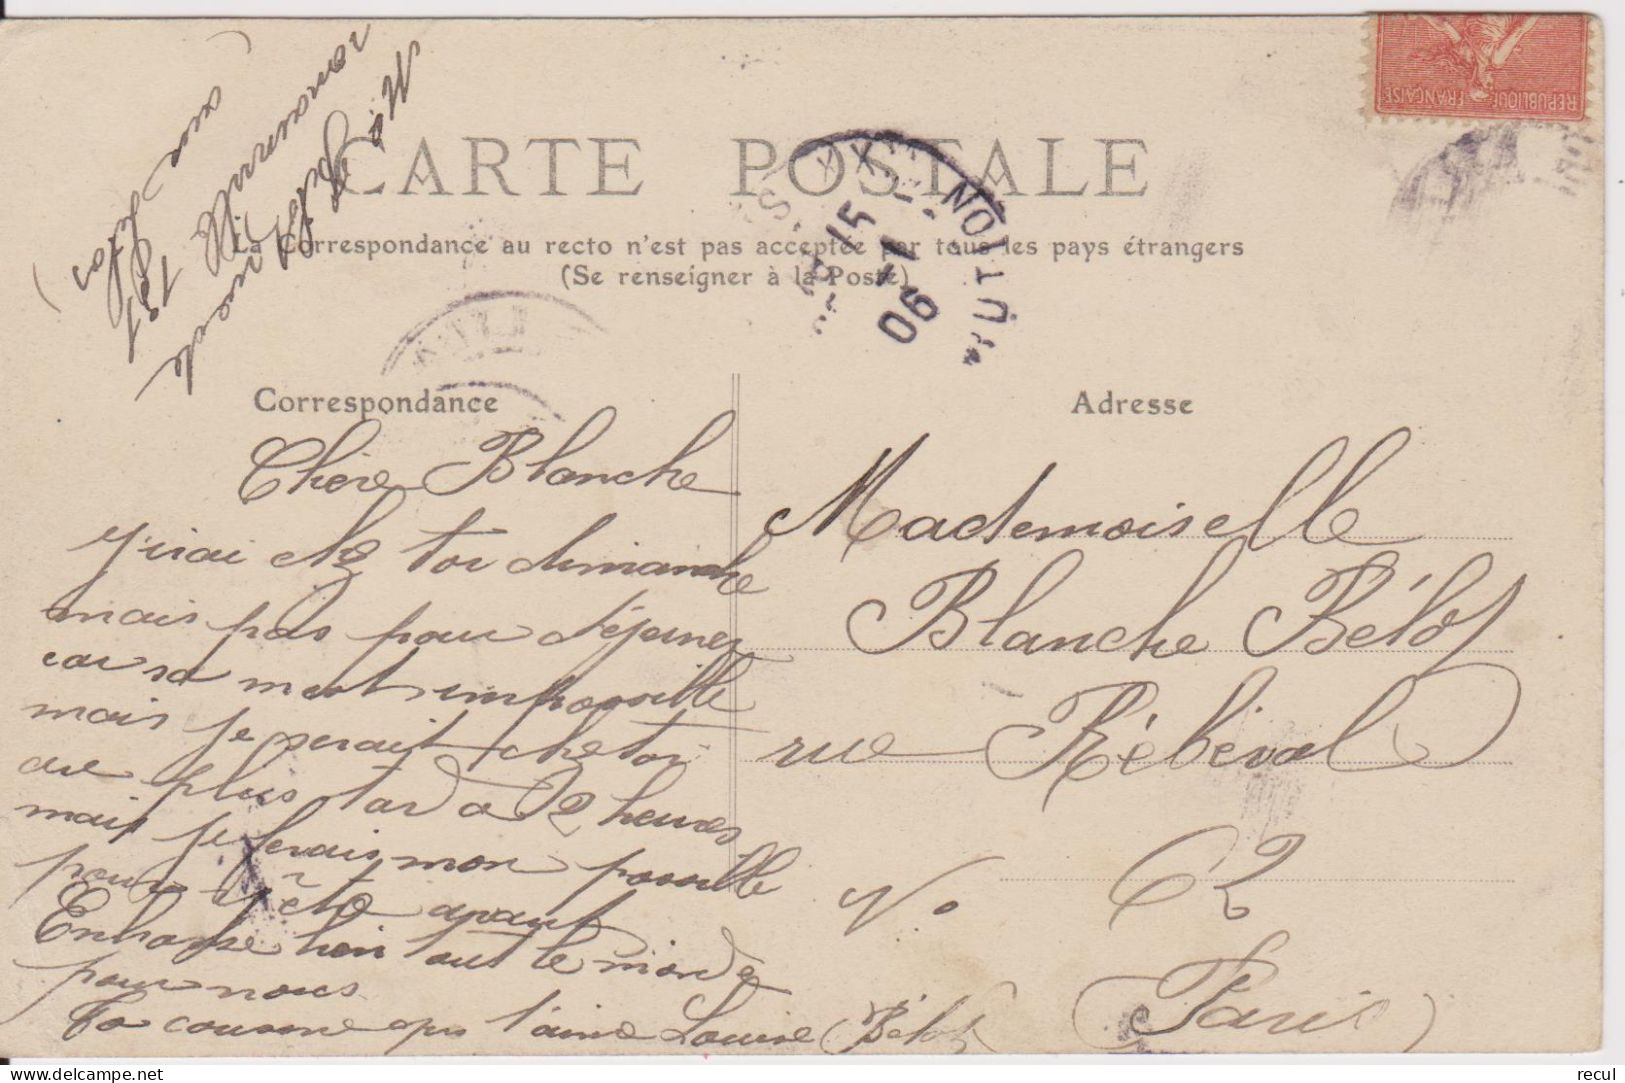 RÉPUBLIQUE FRANÇAISE
CARTE POSTALE
La Correspondance au recto n'est pas acceptée par tous les pays étrangers
(Se renseigner à la Poste)
15
-1
06
Correspondance
Adresse
Chère Blanche
j'irai chz toi dimanche
mais pas pour déjeuner
car sa mest impossible
mais je serait che toi
que plus tard a 2 heures
mais je ferais mon possible
pour y être avant
Embrasse bien tout le monde
pour nous
Ta cousine qui t'aime Louise (Bélot)
Mademoiselle
Blanche Bélot
rue Rébéval
No 62
(Paris)
delcampe.net
recul